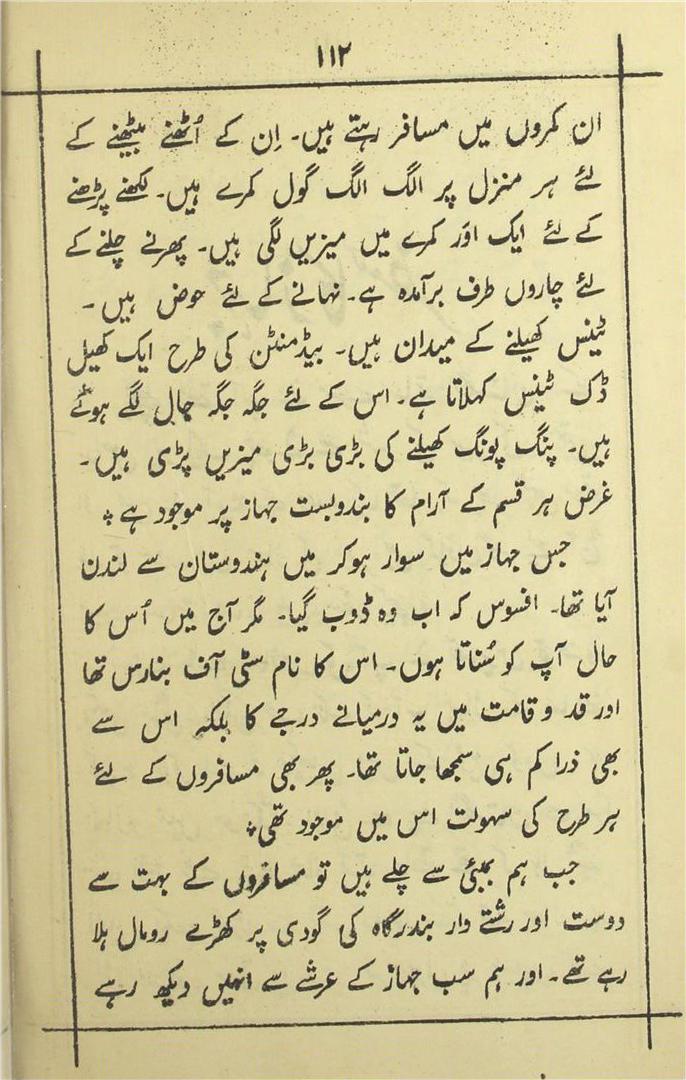 ۱۱۲
ان کمروں میں مسافر رہتے ہیں۔ اِن کے اُٹھنے بیٹھنے کے
لئے ہر منزل پر الگ الگ گول کمرے ہیں۔ لکھنے پڑھنے
کے لئے ایک اَور کمرے میں میزیں لگی ہیں۔ پھرنے چلنے کے
لئے چاروں طرف برآمدہ ہے۔ نہانے کے لئے حوض ہیں۔
ٹینس کھیلنے کے میدان ہیں۔ بیڈمنٹن کی طرح ایک کھیل
ڈک ٹینس کہلاتا ہے۔ اس کے لئے جگہ جگہ جال لگے ہوئے
ہیں۔ پنگ پونگ کھیلنے کی بڑی بڑی میزیں پڑی ہیں۔
غرض ہر قسم کے آرام کا بندوبست جہاز پر موجود ہے؞
جس جہاز میں سوار ہوکر میں ہندوستان سے لندن
آیا تھا۔ افسوس کہ اب وہ ڈوب گیا۔ مگر آج میں اُس کا
حال آپ کو سُناتا ہوں۔ اس کا نام سٹی آف بنارس تھا
اور قد و قامت میں یہ درمیانے درجے کا بلکہ اس سے
بھی ذرا کم ہی سمجھا جاتا تھا۔ پھر بھی مسافروں کے لئے
ہر طرح کی سہولت اس میں موجود تھی؞
جب ہم بمبئی سے چلے ہیں تو مسافروں کے بہت سے
دوست اور رشتے دار بندرگاہ کی گودی پر کھڑے رومال ہلا
رہے تھے۔ اور ہم سب جہاز کے عرشے سے انہیں دیکھ رہے